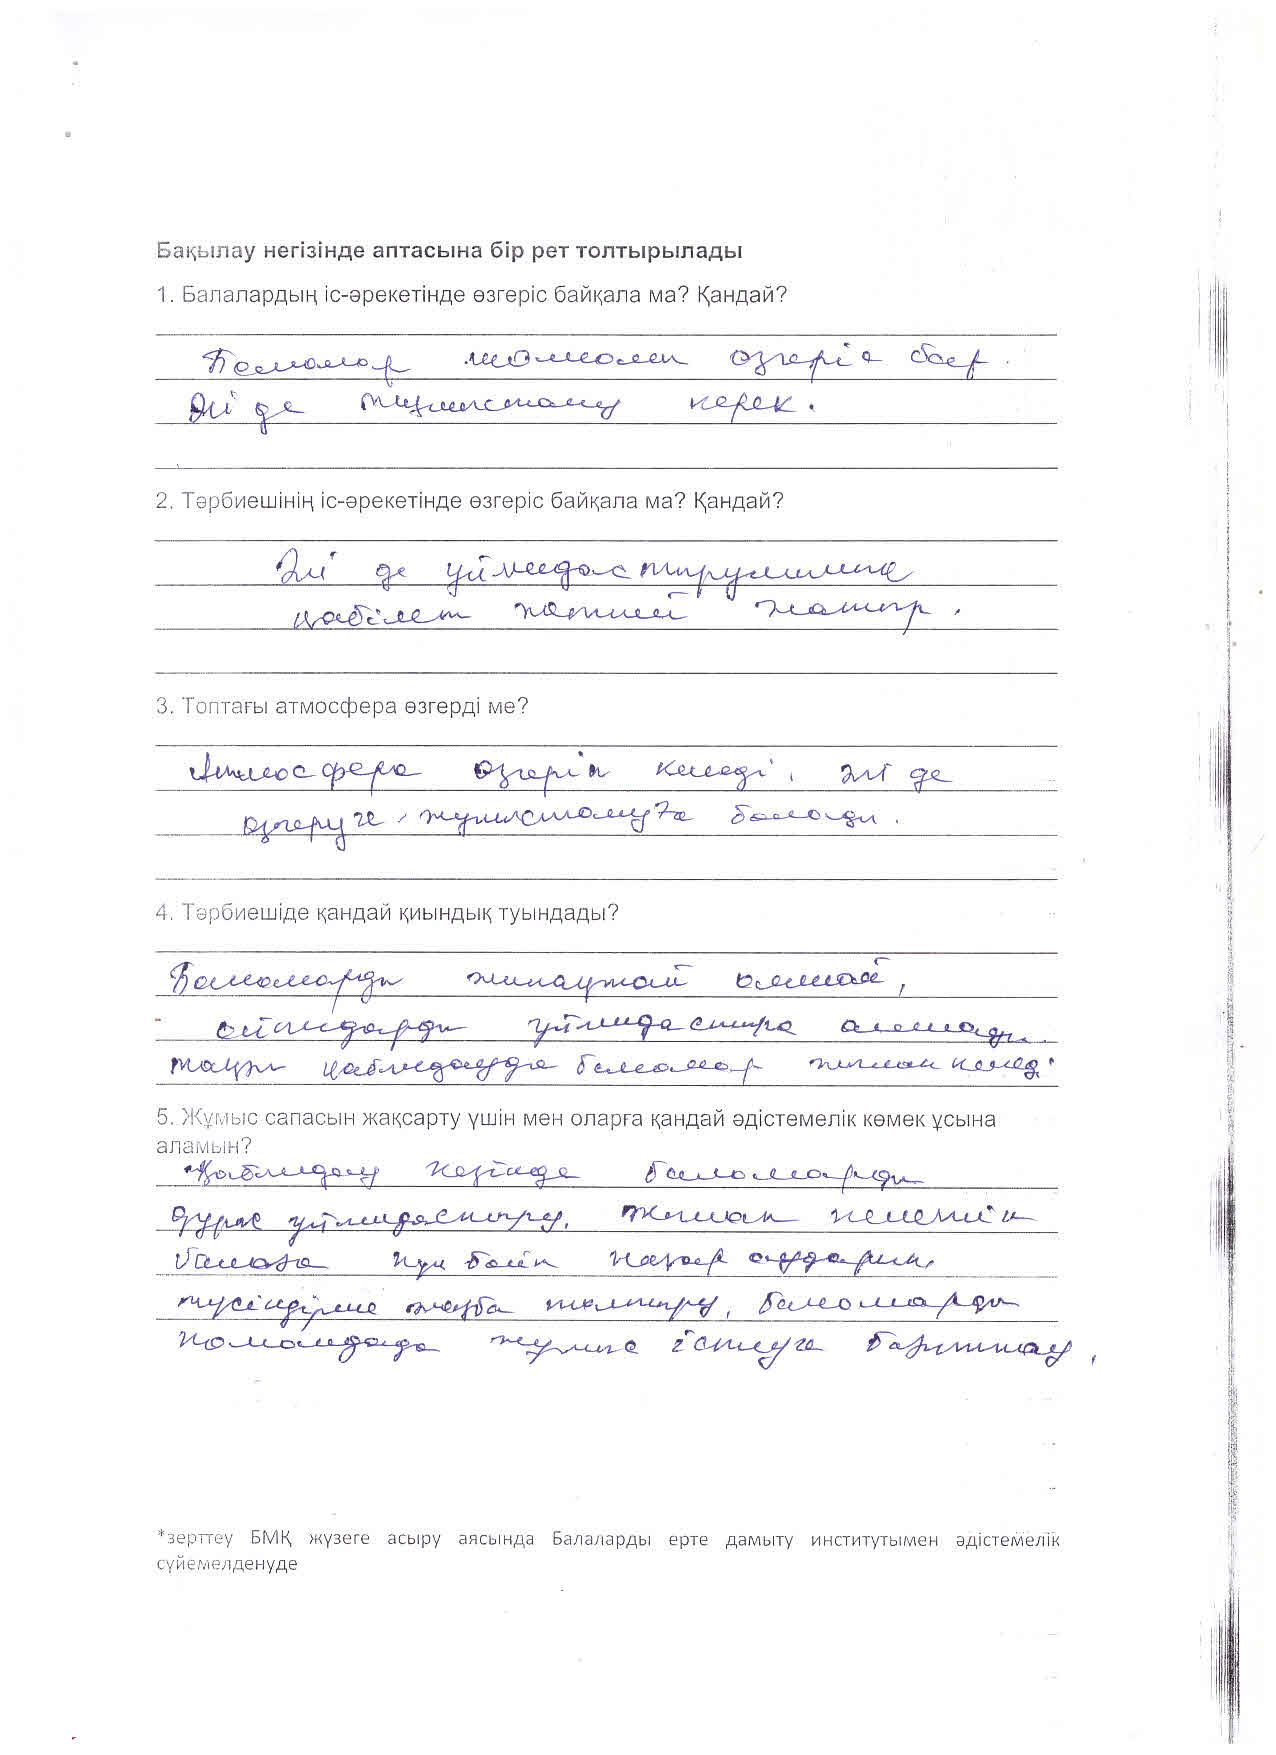 Бақылау негізінде аптасына бір рет толтырылады
1. Балалардың іс-әрекетінде өзгеріс байқала ма? Қандай?
Балалар өзгеріс бар.
Әлі де жұмыстану керек.
2. Тәрбиешінің іс-әрекетінде өзгеріс байқала ма? Қандай?
Әлі де
қабілет жатыр.
3. Топтағы атмосфера өзгерді ме?
Атмосфера өзгеріп келеді, әлі де
өзгеруге, болады.
4. Тәрбиешіде қандай қиындық туындады?
Балаларды алмай,
ойындарды алмады.
жаңа қабылдауда балалар жылап келеді
5. Жұмыс сапасын жақсарту үшін мен оларға қандай әдістемелік көмек ұсына
аламын?
Қабылдау кезінде балаларды
дұрыс ұйымдастыру. Жылап келетін
балаға күн бойы назар аударып,
түсіндірме толтыру, балаларды
командада жұмыс істеуге бағыттау,
*зерттеу БМҚ жүзеге асыру аясында Балаларды ерте дамыту институтымен әдістемелік
сүйемелденуде